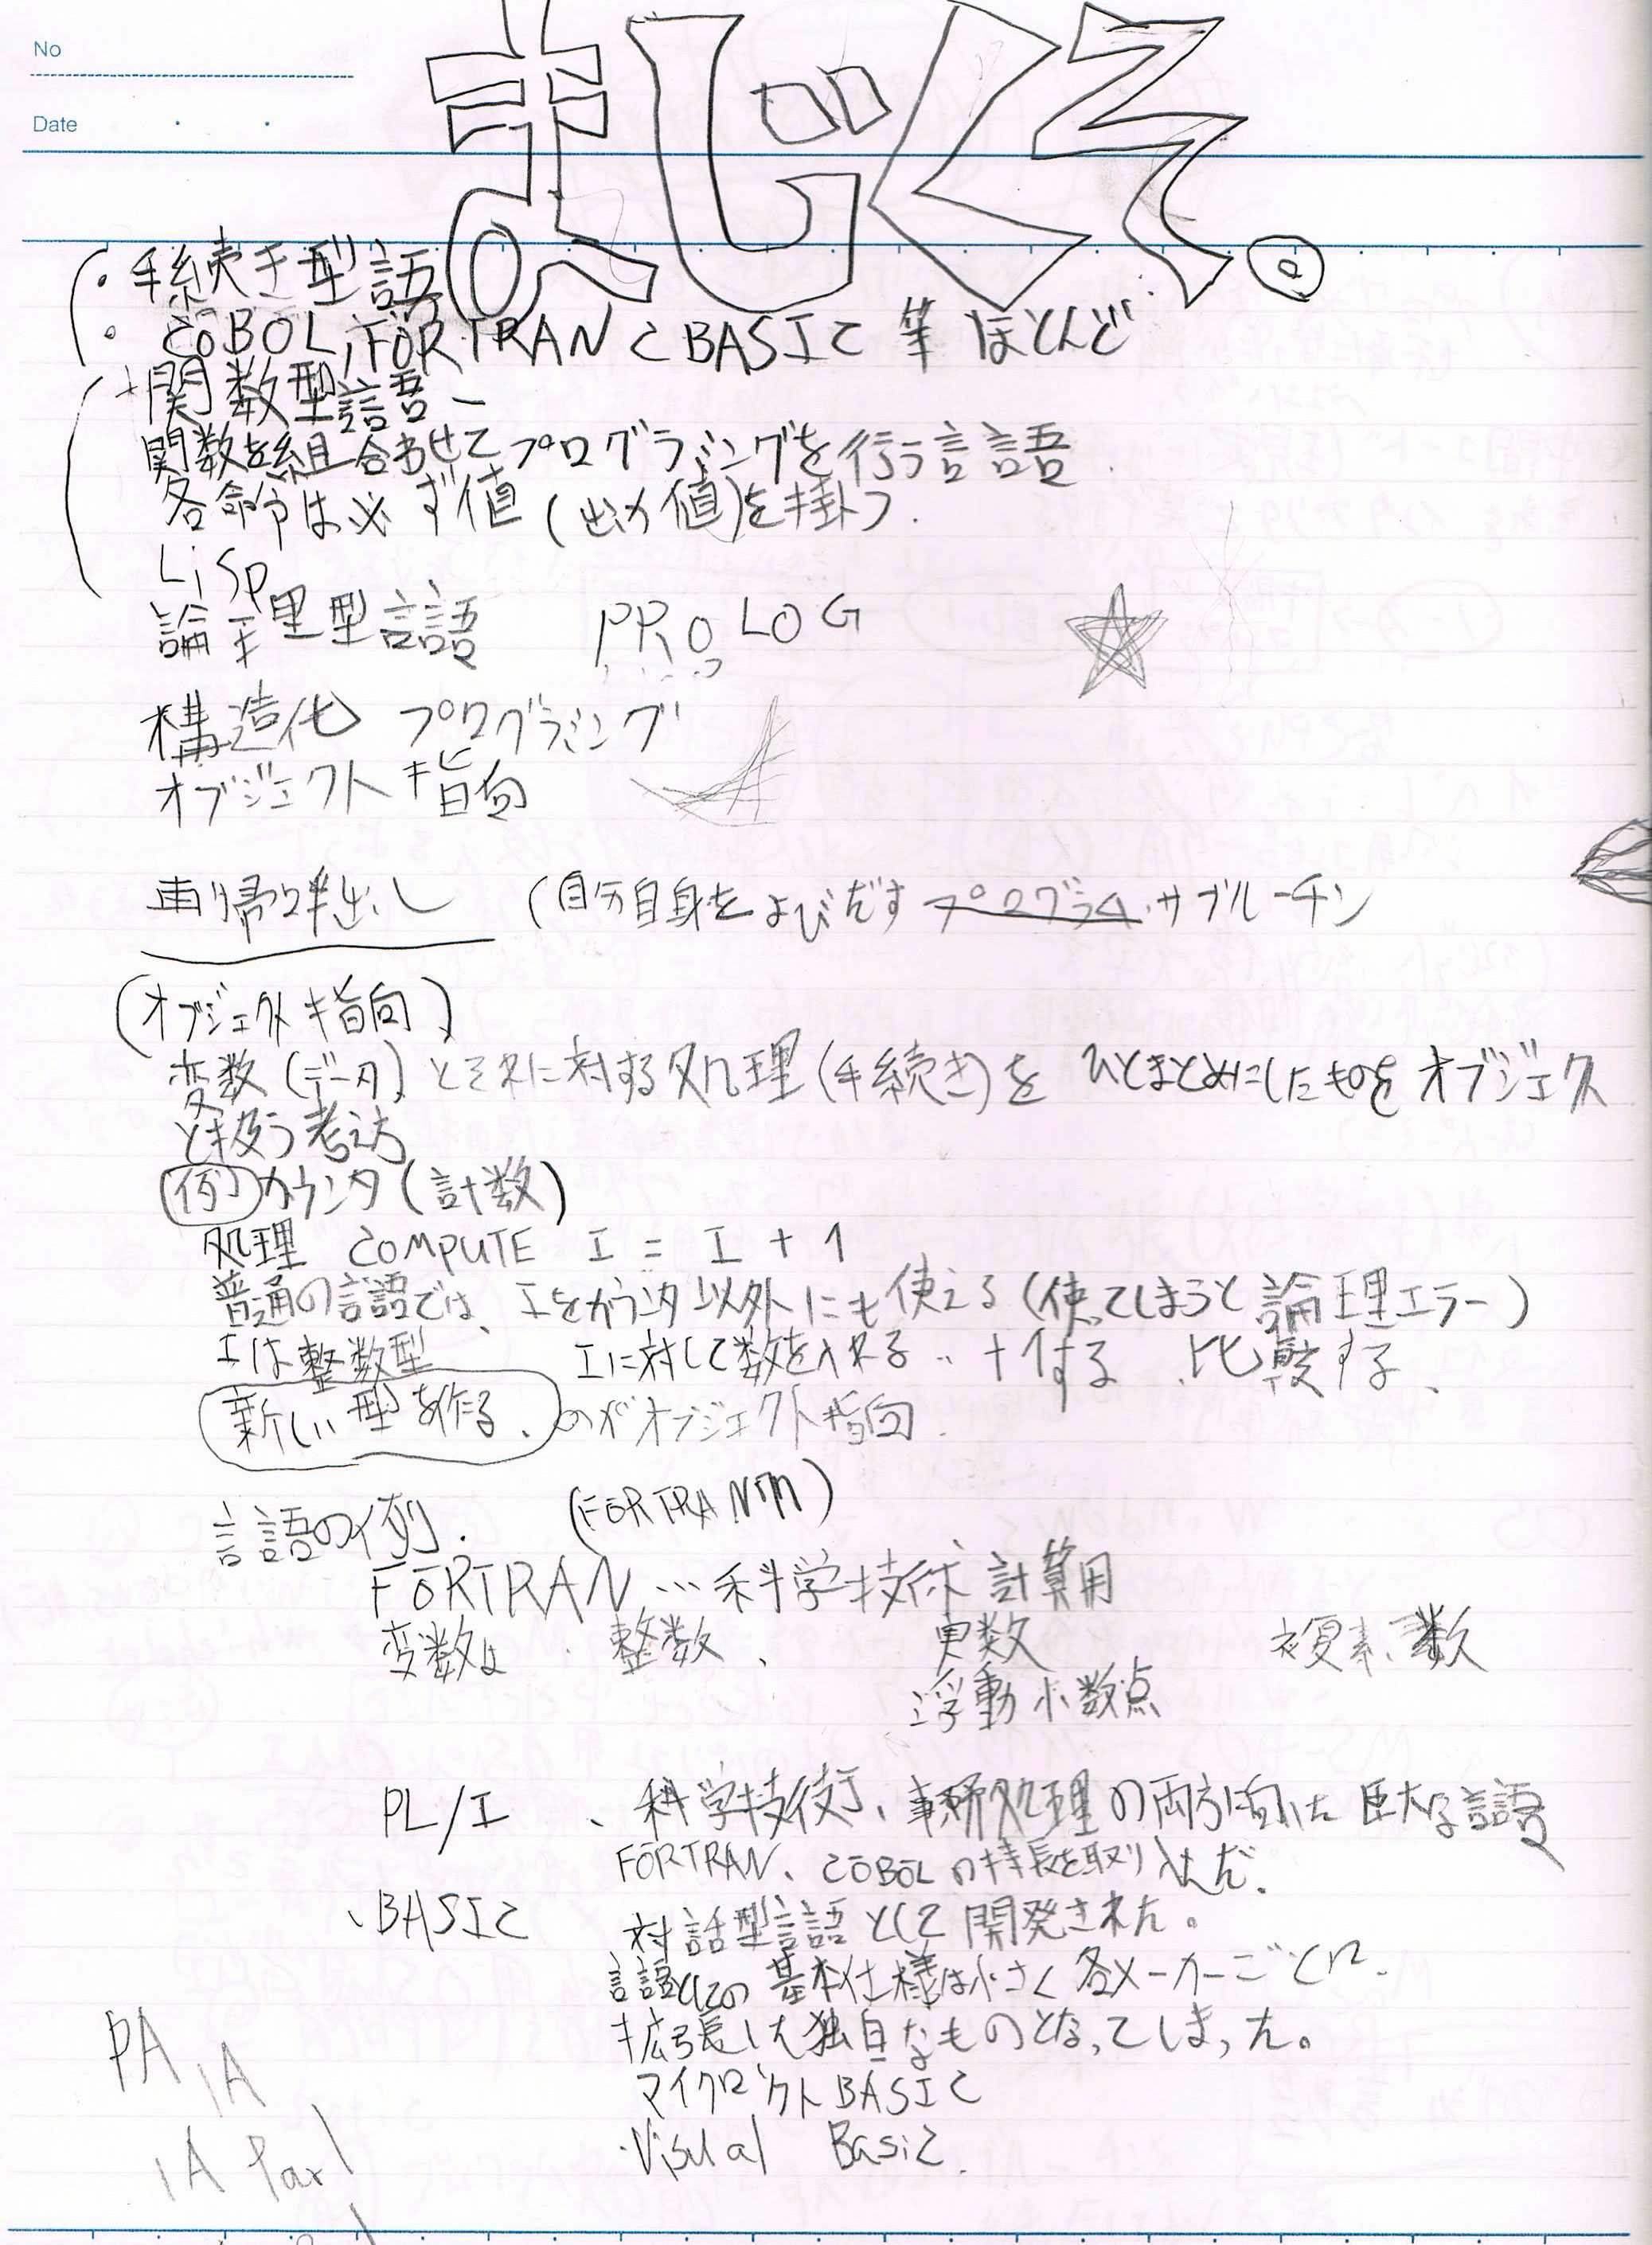 No
Date
まじくそ。
・手続き型語
・COBOL, FORTRAN C BASIC 等 ほとんど
関数型言語
関数を組合わせてプログラミングを行う言語
各命令は必ず値(出力値)を掛つ.
LiSp
論理型言語 PROLOG
構造化 プログラミング
オブジェクト指向
再帰呼出し (自分自身をよびだすプログラム サブルーチン
(オブジェクト指向)
変数(データ)とそれに対する処理(手続き)を ひとまとめにしたものをオブジェクト
と扱う考え方
例 カウンタ(計数)
処理 COMPUTE I = I + 1
普通の言語では、Iをカウンタ以外にも使える(使ってしまうと論理エラー)
Iは整数型 Iに対して数を入れる、+1する、比較する、
新しい型を作る、のがオブジェクト指向.
言語の例. (FORTRAN77)
FORTRAN … 科学技術計算用
変数は 整数、 実数 複素数
浮動小数点
PL/I 、科学技術、事務処理の両方に向いた巨大な言語
FORTRAN、COBOLの特長を取り込んだ.
、BASIC 対話型言語として開発された。
言語としての基本仕様は小さく各メーカーごとに
拡張した独自なものとなってしまった。
マイクロソフトBASIC
Visual Basic.
PA
IA
IA Parl